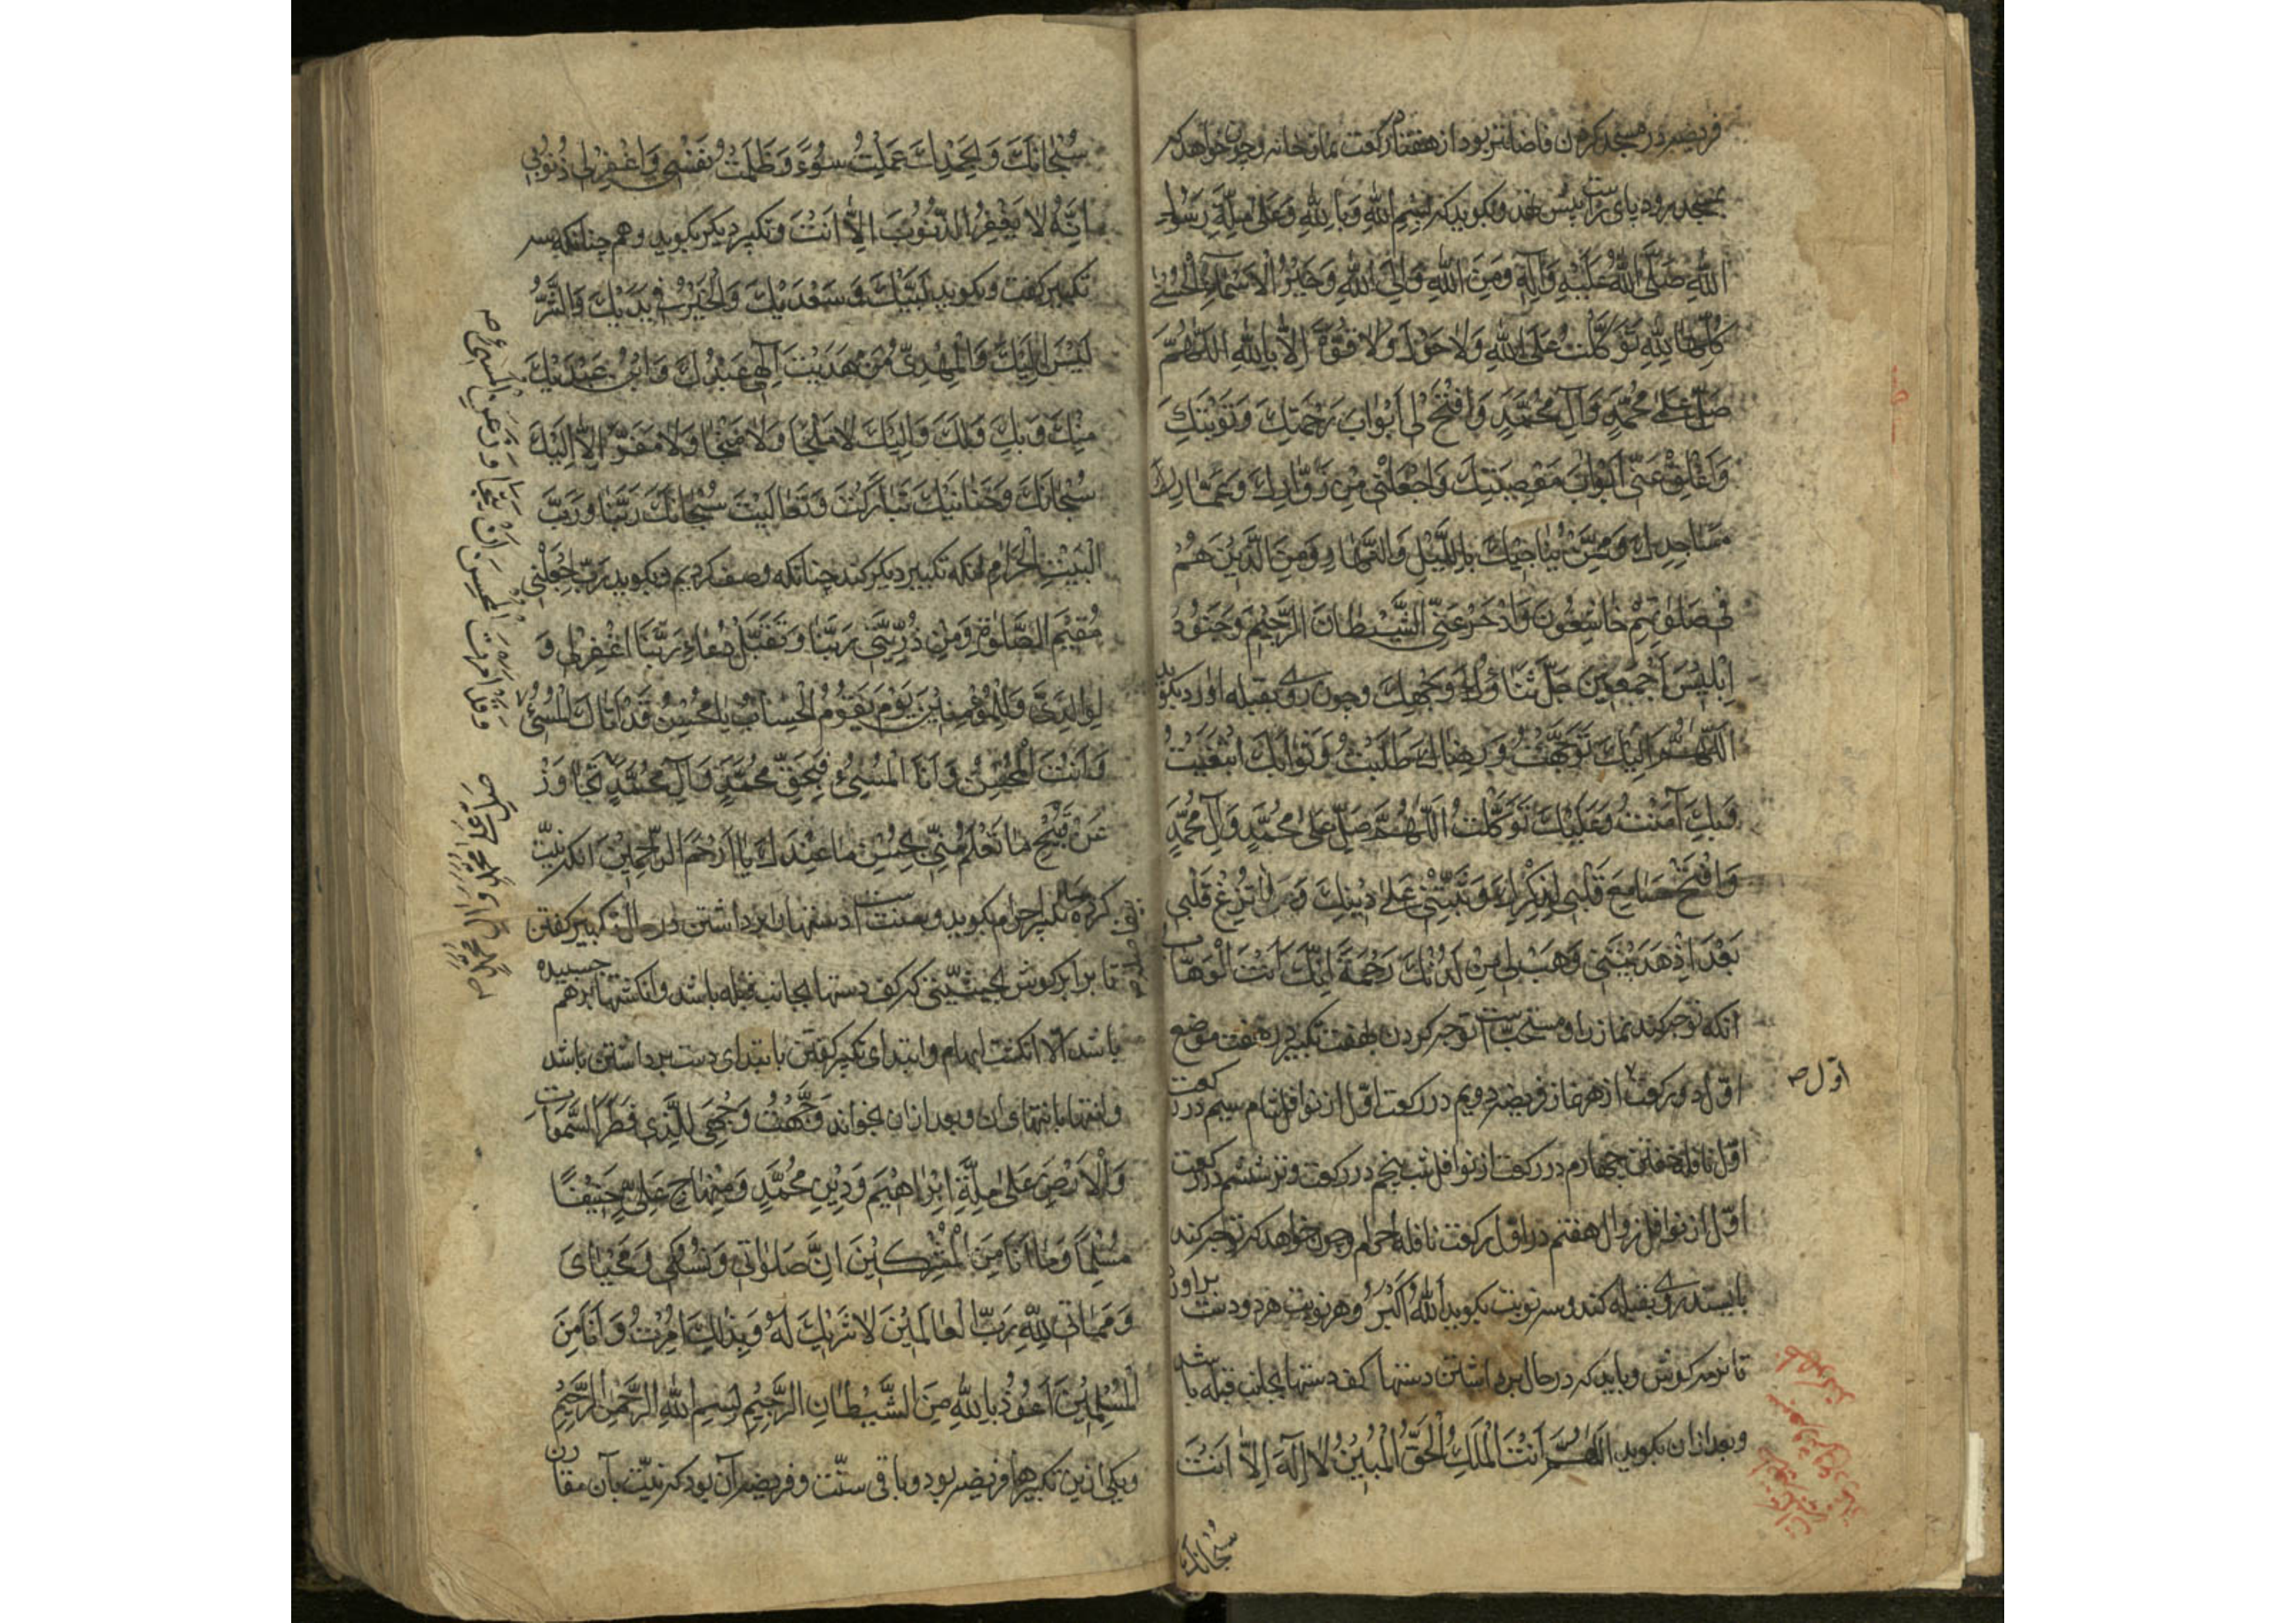 فریضه در مسجد کردن فاضلتر بود از هفتاد رکعت نماز خانه و چون خواهد که
بمسجد رود پای راست پیش نهد و بکوید که بِسْمِ اللهِ وَبِاللهِ وَعَلىٰ مِلَّةِ رَسُولِ
اللهِ صَلَّى اللهُ عَلَيْهِ وَآلِهِ وَمِنَ اللهِ وَاِلَى اللهِ وَخَيْرُ الْاَسْمَاءِ الْحُسْنىٰ
كُلِّهَا لِلّٰهِ تَوَكَّلْتُ عَلَى اللهِ وَلَا حَوْلَ وَلَا قُوَّةَ اِلَّا بِاللهِ اللّٰهُمَّ
صَلِّ عَلىٰ مُحَمَّدٍ وَآلِ مُحَمَّدٍ وَافْتَحْ لِي اَبْوَابَ رَحْمَتِكَ وَتَوْبَتِكَ
وَاَغْلِقْ عَنِّي اَبْوَابَ مَعْصِيَتِكَ وَاجْعَلْنِي مِنْ زُوَّارِكَ وَعُمَّارِ
مَسَاجِدِكَ وَمِمَّنْ يُنَاجِيكَ بِاللَّيْلِ وَالنَّهَارِ وَمِنَ الَّذِينَ هُمْ
فِي صَلٰوتِهِمْ خَاشِعُونَ وَادْحَرْ عَنِّي الشَّيْطَانَ الرَّجِيمَ وَجُنُودَ
اِبْلِيسَ اَجْمَعِينَ جَلَّ ثَنَاؤُكَ وَجْهِكَ و چون روی بقبله اورد بکوید
اَللّٰهُمَّ اِلَيْكَ تَوَجَّهْتُ وَرِضَاكَ طَلَبْتُ وَثَوَابَكَ ابْتَغَيْتُ
وَبِكَ آمَنْتُ وَعَلَيْكَ تَوَكَّلْتُ اَللّٰهُمَّ صَلِّ عَلىٰ مُحَمَّدٍ وَآلِ مُحَمَّدٍ
وَافْتَحْ مَسَامِعَ قَلْبِي لِذِكْرِكَ وَثَبِّتْنِي عَلىٰ دِينِكَ وَلَا تُزِغْ قَلْبِي
بَعْدَ اِذْ هَدَيْتَنِي وَهَبْ لِي مِنْ لَدُنْكَ رَحْمَةً اِنَّكَ اَنْتَ الْوَهَّابُ
انکه توجه کند نماز را و مستحب است توجه کردن بهفت تکبیر در هفت موضع
اوّل در رکعت از هر نماز فریضه دویم در رکعت اوّل از نوافل شام سیم در رکعت
اوّل نافله خفتن چهارم در رکعت از نوافل شب پنجم در رکعت وتر ششم در رکعت
اوّل از نوافل زوال هفتم در اوّل رکعت نافله احرام و چون خواهد که توجه کند
بایستد روی بقبله کند و سه نوبت بکوید اَللهُ اَكْبَرُ و هر نوبت هر دو دست براورد
تا نرمه کوش و باید که در حال برداشتن دستها کف دستها بجانب قبله باشد
و بعد ازان بکوید اَللّٰهُمَّ اَنْتَ الْمَلِكُ الْحَقُّ الْمُبِينُ لَا اِلٰهَ اِلَّا اَنْتَ
سُبْحَانَكَ
اوّل صح
سُبْحَانَكَ وَبِحَمْدِكَ عَمِلْتُ سُوءً وَظَلَمْتُ نَفْسِي وَاغْفِرْ لِي ذُنُوبِي
اِنَّهُ لَا يَغْفِرُ الذُّنُوبَ اِلَّا اَنْتَ و تکبیر دیکر بکوید و هم چنانکه سه
تکبیر کفت و بکوید لَبَّيْكَ وَسَعْدَيْكَ وَالْخَيْرُ فِي يَدَيْكَ وَالشَّرُّ
لَيْسَ اِلَيْكَ وَالْمَهْدِيُّ مَنْ هَدَيْتَ اِلٰهِي عَبْدُكَ وَابْنُ عَبْدَيْكَ
مِنْكَ وَبِكَ وَلَكَ وَاِلَيْكَ لَا مَلْجَأَ وَلَا مَنْجَا وَلَا مَفَرَّ اِلَّا اِلَيْكَ
سُبْحَانَكَ وَحَنَانَيْكَ تَبَارَكْتَ وَتَعَالَيْتَ سُبْحَانَكَ رَبَّنَا وَرَبَّ
الْبَيْتِ الْحَرَامِ انکه تکبیر دیکر کند چنانکه وصف کردیم و بکوید رَبِّ اجْعَلْنِي
مُقِيمَ الصَّلٰوةِ وَمِنْ ذُرِّيَّتِي رَبَّنَا وَتَقَبَّلْ دُعَاءِ رَبَّنَا اغْفِرْ لِي وَ
لِوَالِدَيَّ وَلِلْمُؤْمِنِينَ يَوْمَ يَقُومُ الْحِسَابُ يَا مُحْسِنُ قَدْ اَتَاكَ الْمُسِيءُ
وَاَنْتَ الْمُحْسِنُ وَاَنَا الْمُسِيءُ فَبِحَقِّ مُحَمَّدٍ وَآلِ مُحَمَّدٍ تَجَاوَزْ
عَنْ قَبِيحِ مَا تَعْلَمُ مِنِّي بِحُسْنِ مَا عِنْدَكَ يَا اَرْحَمَ الرَّاحِمِينَ انکه نیّت
کرده تکبیر احرام بکوید و سنت است دستها را برداشتن در حال تکبیر کفتن
تا برابر کوش بحیثیّتی که کف دستها بجانب قبله باشد و انکشتها برهم چسبیده
باشد الّا انکشت ابهام و ابتدای تکبیر کفتن بابتدای دست برداشتن باشد
و انتها بانتهای ان و بعد ازان بخواند وَجَّهْتُ وَجْهِيَ لِلَّذِي فَطَرَ السَّمٰوَاتِ
وَالْاَرْضَ عَلىٰ مِلَّةِ اِبْرَاهِيمَ وَدِينِ مُحَمَّدٍ وَمِنْهَاجِ عَلِيٍّ حَنِيفًا
مُسْلِمًا وَمَا اَنَا مِنَ الْمُشْرِكِينَ اِنَّ صَلٰوتِي وَنُسُكِي وَمَحْيَايَ
وَمَمَاتِي لِلّٰهِ رَبِّ الْعَالَمِينَ لَا شَرِيكَ لَهُ وَبِذٰلِكَ اُمِرْتُ وَاَنَا مِنَ
الْمُسْلِمِينَ اَعُوذُ بِاللهِ مِنَ الشَّيْطَانِ الرَّجِيمِ بِسْمِ اللهِ الرَّحْمٰنِ الرَّحِيمِ
و یکی ازین تکبیرها فریضه بود و باقی سنّت و فریضه آن بود که نیّت بآن مقارن
وَقَدْ اَمَرْتَ الْمُحْسِنَ اَنْ يَتَجَاوَزَ عَنِ الْمُسِيءِ صح
صَلِّ عَلىٰ مُحَمَّدٍ وَآلِ مُحَمَّدٍ صح